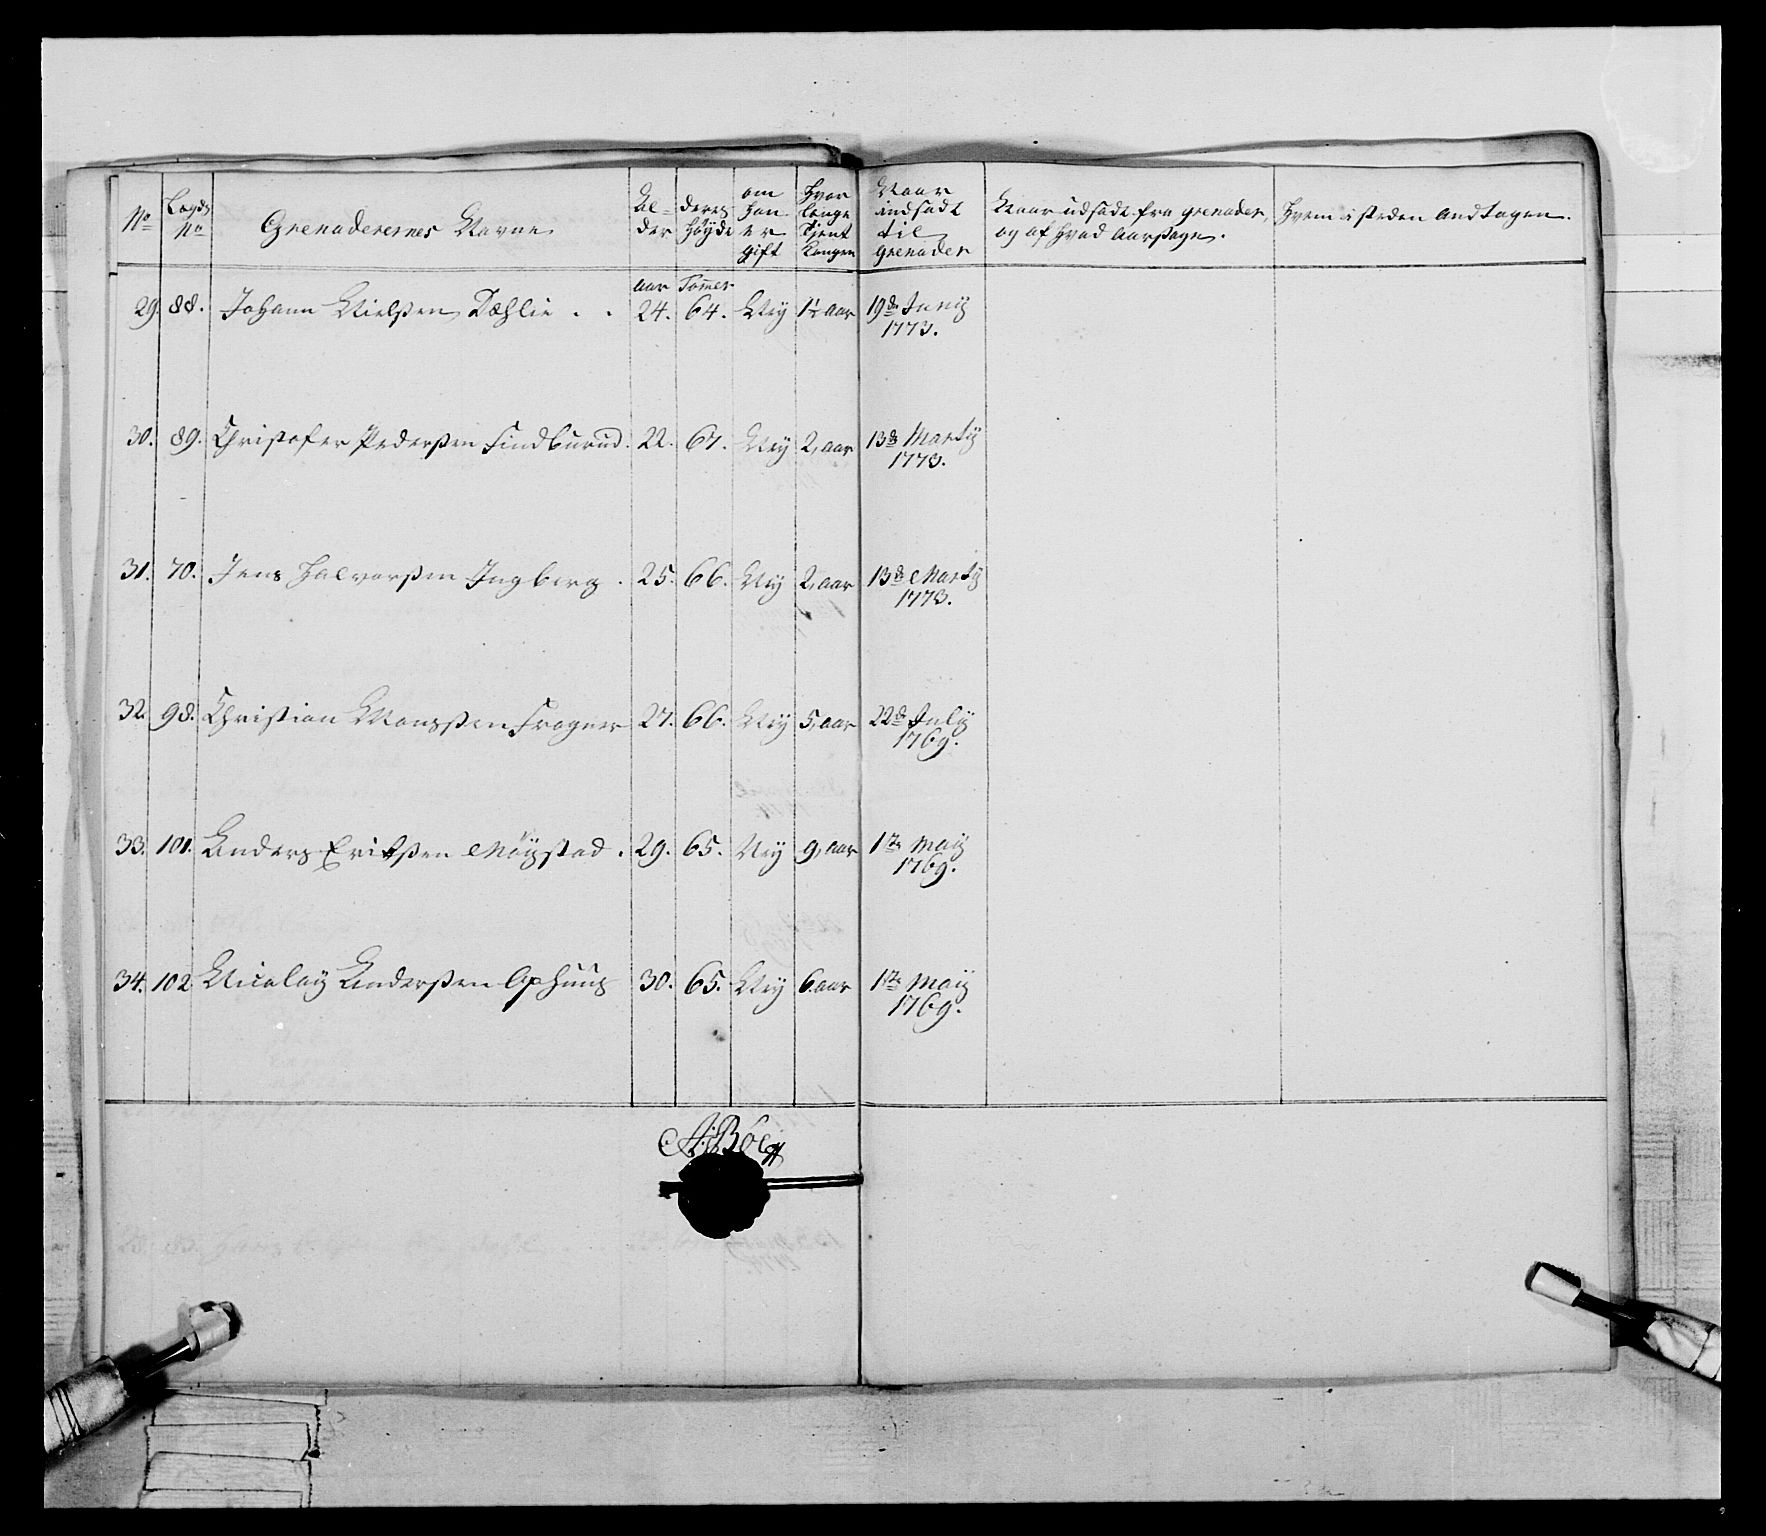 No Lægds No Grenaderernes Navne Al- der deres Høyde om han er gift Hvor længe tient Kongen Naar indsadt til grenader Naar udsadt fra grenader, og af hvad Aarsage. Hvem i steden Andtagen.
aar Tomer
29. 88. Johann Nielssen Dæhlie . . 24. 64. Ney 1½ aar 19de Juny 1773.
30. 89. Christofer Pederssen Findburud. 22. 67. Ney 2, aar 13de Marty 1773.
31. 70. Jens Halvorssen Ingberg . 25. 66. Ney 2, aar 13de Marty 1773.
32. 98. Christian Monssen Frogner 27. 66. Ney 5, aar 22de July 1769.
33. 101. Anders Erikssen Møystad . 29. 65. Ney 9, aar 1te Maij 1769.
34. 102 Nicolay Anderssen Ophuus 30. 65. Ney 6. aar 1te Maij 1769.
A: Böe